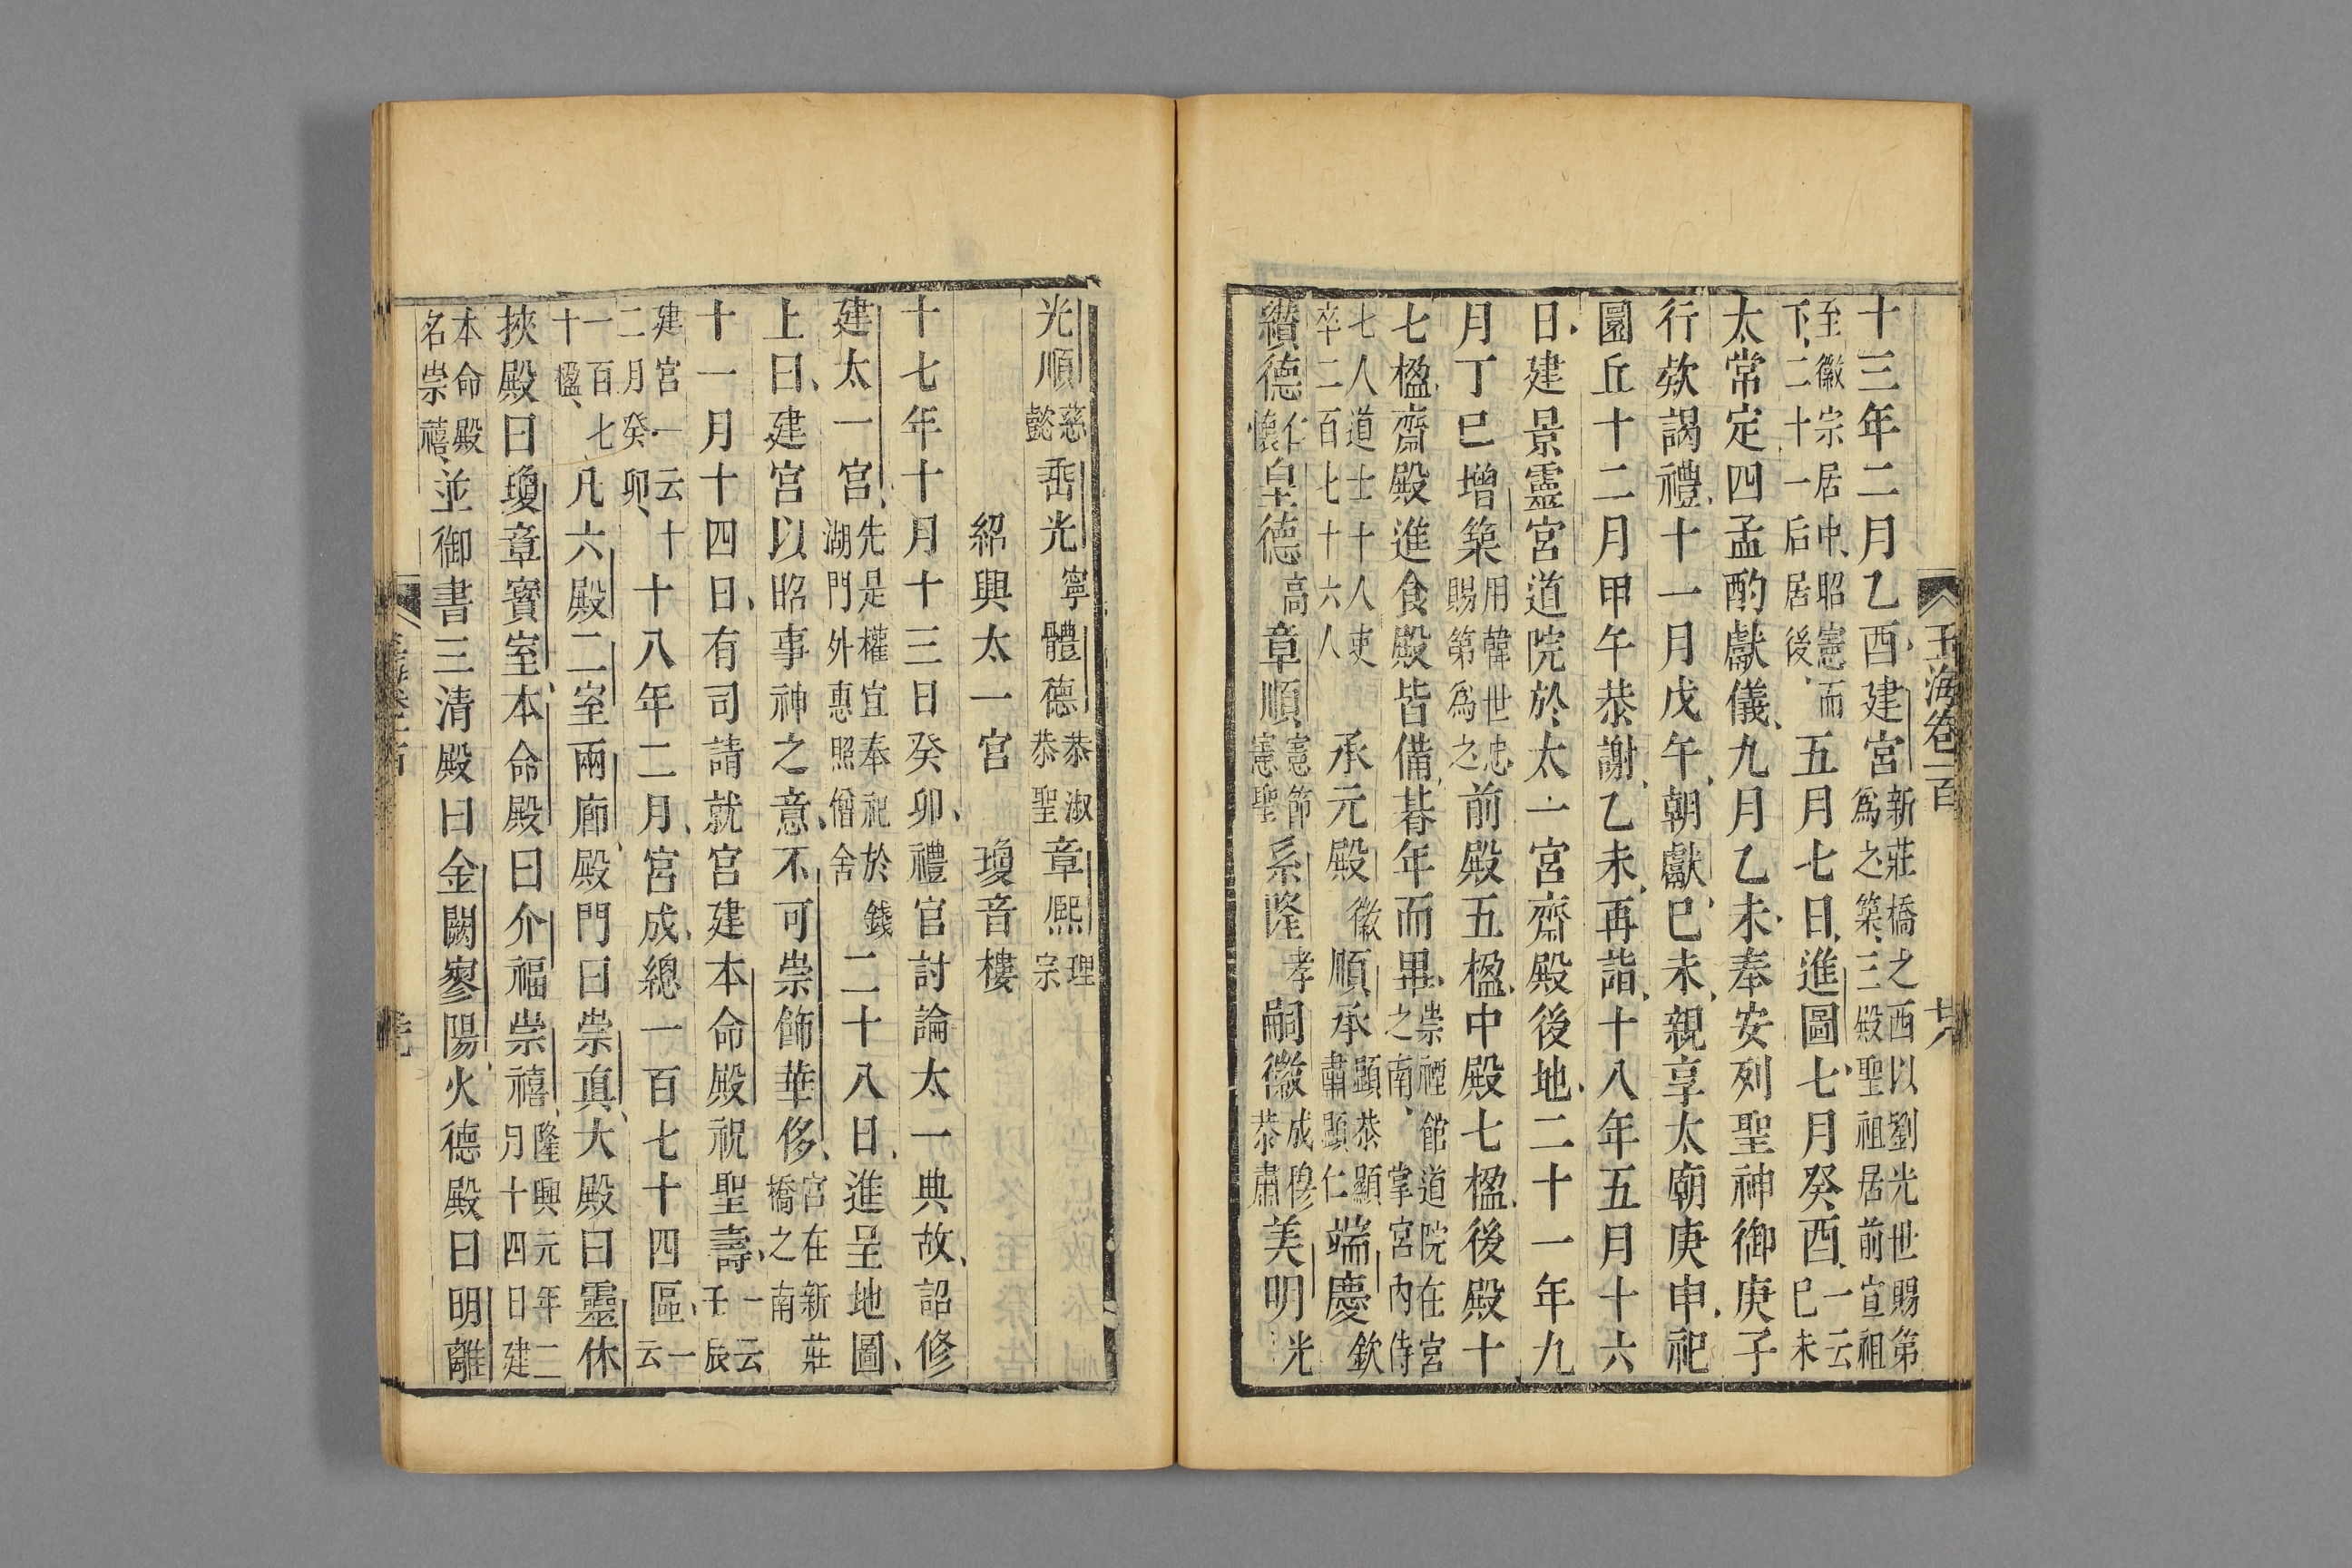 玉海卷一百
十三年二月乙酉建宮新莊橋之西以劉光世賜第爲之築三殿聖祖居前宣祖
至徽宗居中昭憲而下二十一后居後五月七日進圖七月癸酉一云巳未
太常定四孟酌獻儀九月乙未奉安列聖神御庚子
行欵謁禮十一月戊午朝獻巳未親享太廟庚申祀
圜丘十二月甲午恭謝乙未再詣十八年五月十六
日建景靈宮道院於太一宮齋殿後地二十一年九
月丁巳增築用韓世忠賜第爲之前殿五楹中殿七楹後殿十
七楹齋殿進食殿皆備朞年而畢崇禋館道院在宮之南掌宮內侍
七人道士十人吏卒二百七十六人承元殿徽順承顯恭顯肅顯仁端慶欽
纘德仁懷皇德高章順憲節憲聖系隆孝嗣徽成穆恭肅美明光
光順慈懿垂光寧體德恭淑恭聖章熙理宗
紹興太一宮　瓊音樓
十七年十月十三日癸卯禮官討論太一典故詔修
建太一宮先是權宜奉祀於錢湖門外惠照僧舍二十八日進呈地圖
上曰建宮以昭事神之意不可崇飾華侈宮在新莊橋之南
十一月十四日有司請就宮建本命殿祝聖壽一云壬辰
建宮一云十二月癸卯十八年二月宮成總一百七十四區一云
一百七十楹凡六殿二室兩廊殿門曰崇眞大殿曰靈休
挾殿曰瓊章寳室本命殿曰介福崇禧隆興元年二月十四日建
本命殿名崇禧並御書三清殿曰金闕寥陽火德殿曰明離